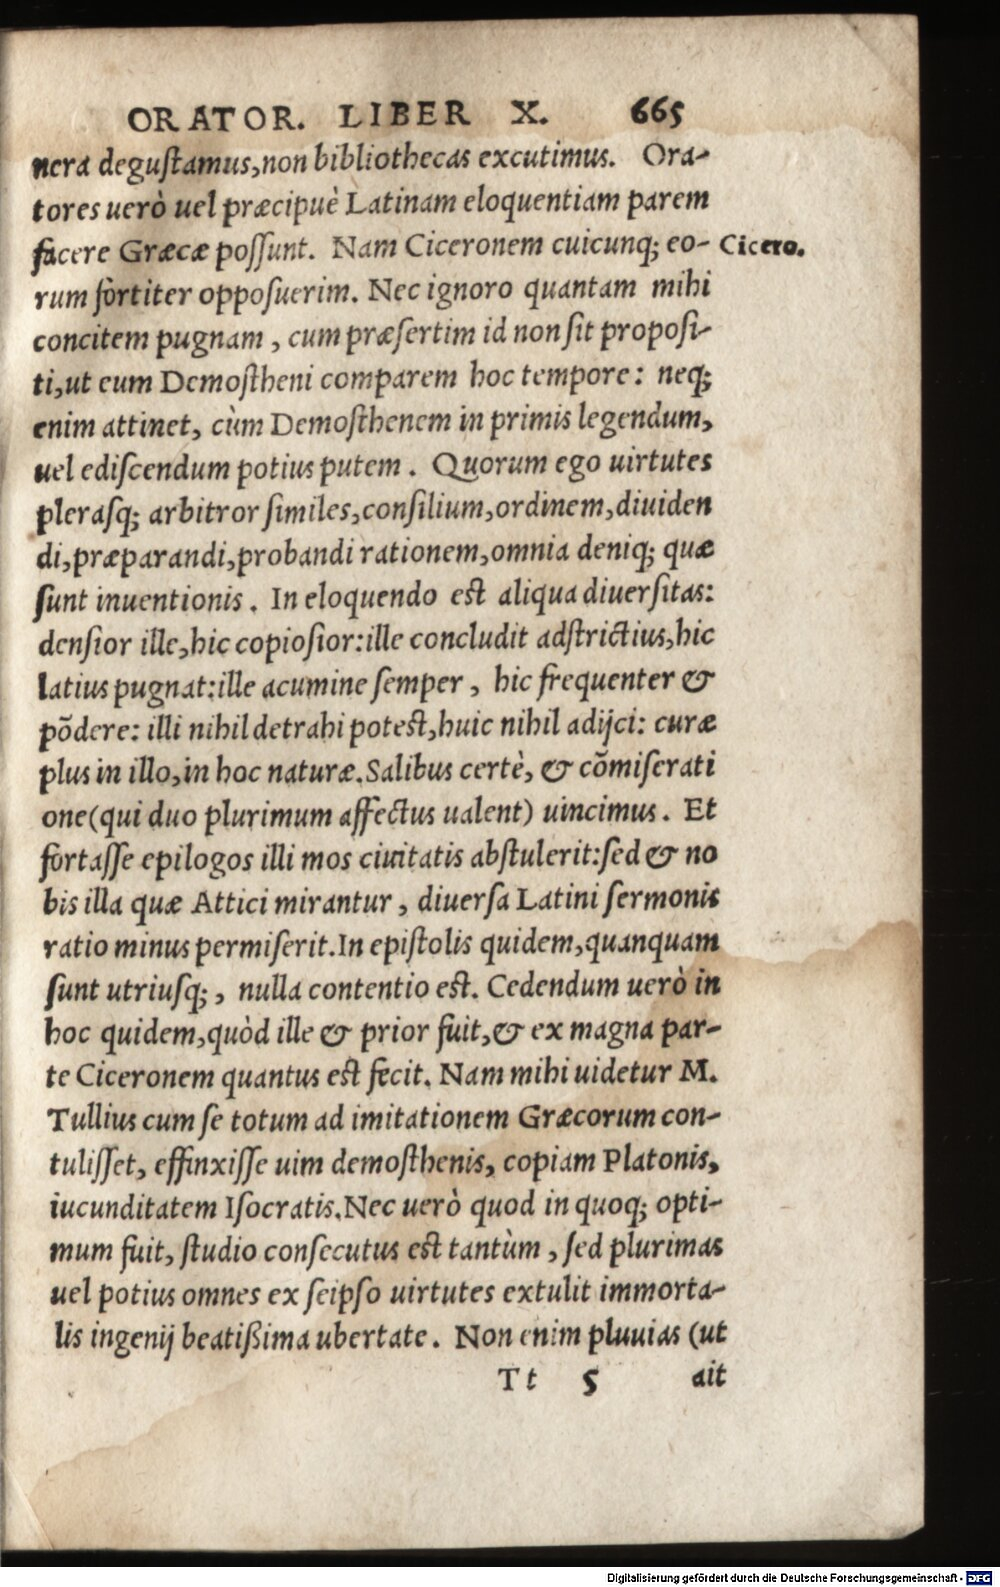 ORATOR. LIBER X. 665
nera deguſtamus,non bibliothecas excutimus. Ora-
tores uerò uel præcipuè Latinam eloquentiam parem
facere Græcæ poſſunt. Nam Ciceronem cuicunq; eo- Cicero.
rum fortiter oppoſuerim. Nec ignoro quantam mihi
concitem pugnam, cum præſertim id non ſit propoſi-
ti,ut eum Demoſtheni comparem hoc tempore: neq;
enim attinet, cùm Demoſthenem in primis legendum,
uel ediſcendum potius putem. Quorum ego uirtutes
pleraſq; arbitror ſimiles,conſilium,ordinem,diuiden
di,præparandi,probandi rationem,omnia deniq; quæ
ſunt inuentionis. In eloquendo eſt aliqua diuerſitas:
denſior ille,hic copioſior:ille concludit adſtrictius,hic
latius pugnat:ille acumine ſemper, hic frequenter &
põdere: illi nihil detrahi poteſt,huic nihil adijci: curæ
plus in illo,in hoc naturæ.Salibus certè, & cõmiſerati
one(qui duo plurimum affectus ualent) uincimus. Et
fortaſſe epilogos illi mos ciuitatis abſtulerit:ſed & no
bis illa quæ Attici mirantur, diuerſa Latini ſermonis
ratio minus permiſerit.In epiſtolis quidem,quanquam
ſunt utriuſq;, nulla contentio eſt. Cedendum uerò in
hoc quidem,quòd ille & prior fuit,& ex magna par-
te Ciceronem quantus eſt fecit. Nam mihi uidetur M.
Tullius cum ſe totum ad imitationem Græcorum con-
tuliſſet, effinxiſſe uim demoſthenis, copiam Platonis,
iucunditatem Iſocratis.Nec uerò quod in quoq; opti-
mum fuit, ſtudio conſecutus eſt tantùm, ſed plurimas
uel potius omnes ex ſeipſo uirtutes extulit immorta-
lis ingenij beatißima ubertate. Non enim pluuias (ut
Tt 5 ait
Digitalisierung gefördert durch die Deutsche Forschungsgemeinschaft - DFG